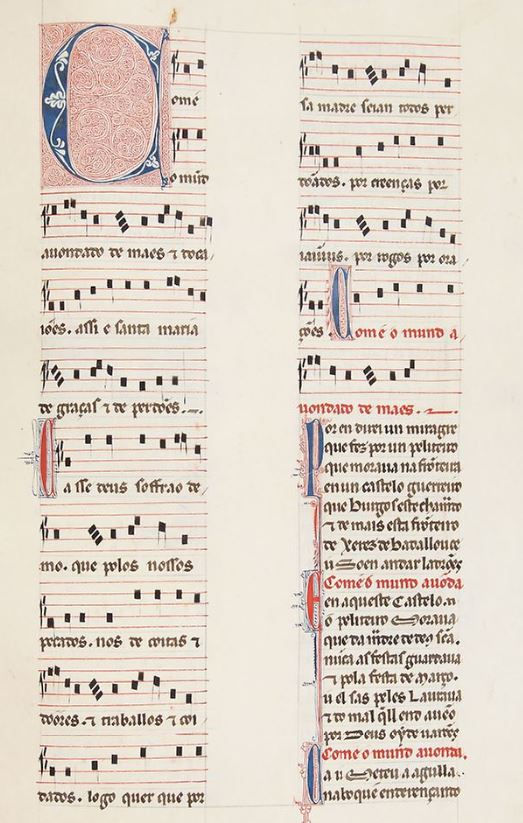 Come
o mund
auondado de maes ⁊ docai
iões. assi e santa maria
de graças ⁊ de perdões.
Ca sse deus soffrao de
mo. que polos nossos
pecados. nos de coitas ⁊
doores. ⁊ traballos ⁊ coi
dados. logo quer que por
sa madre seian todos per
doados. por creenças por
iaiũus. por rogos por ora
ções. Come o mund a
uondado de maes.
Poren direi un miragre
que fez por un peliteiro
que moraua na fronteira
en un castelo guerreiro
que Burgos este chamado
⁊ de mais esta fronteiro
de Xerez de Badallouce
u soen andar ladrões
Come o mund auonda
En aqueste Castelo
o peliteiro moraua
que da madre de deus
nunca as festas guardaua
⁊ pola festa de março.
u el sas peles Lauaua
⁊ do mal qll end aueo
por Deus oyde uarões
Come o mund auonda.
Ca u Meteu a agulla
na boque enterençando